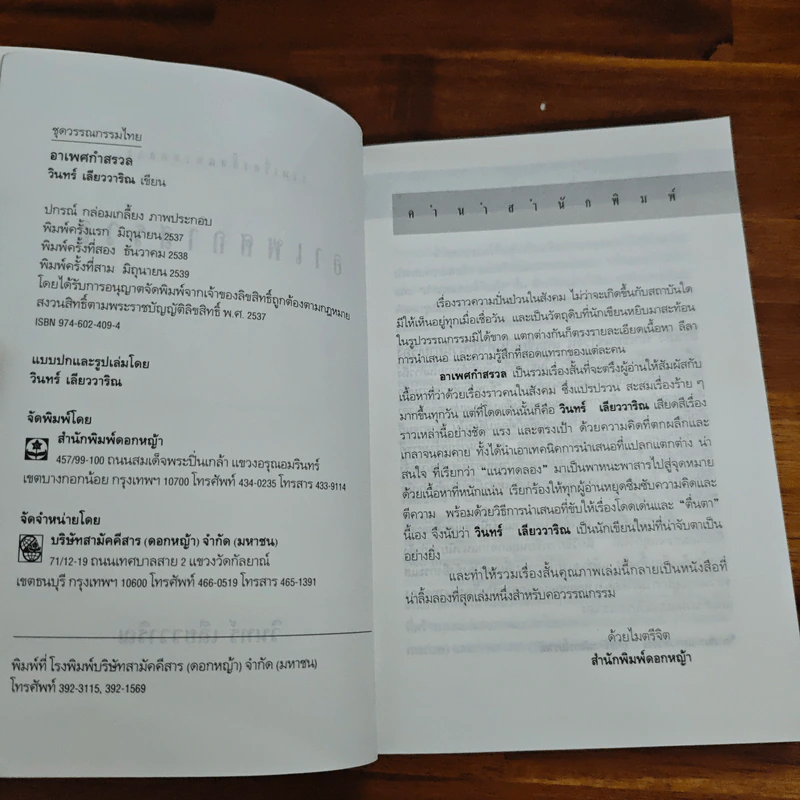 ชุดวรรณกรรมไทย
อาเพศกำสรวล
วินทร์ เลียววาริณ เขียน
ปกรณ์ กล่อมเกลี้ยง ภาพประกอบ
พิมพ์ครั้งแรก มิถุนายน 2537
พิมพ์ครั้งที่สอง ธันวาคม 2538
พิมพ์ครั้งที่สาม มิถุนายน 2539
โดยได้รับการอนุญาตจัดพิมพ์จากเจ้าของลิขสิทธิ์ถูกต้องตามกฎหมาย
สงวนสิทธิ์ตามพระราชบัญญัติลิขสิทธิ์ พ.ศ. 2537
ISBN 974-602-409-4
แบบปกและรูปเล่มโดย
วินทร์ เลียววาริณ
จัดพิมพ์โดย
สำนักพิมพ์ดอกหญ้า
457/99-100 ถนนสมเด็จพระปิ่นเกล้า แขวงอรุณอมรินทร์
เขตบางกอกน้อย กรุงเทพฯ 10700 โทรศัพท์ 434-0235 โทรสาร 433-9114
จัดจำหน่ายโดย
บริษัทสามัคคีสาร (ดอกหญ้า) จำกัด (มหาชน)
71/12-19 ถนนเทศบาลสาย 2 แขวงวัดกัลยาณ์
เขตธนบุรี กรุงเทพฯ 10600 โทรศัพท์ 466-0519 โทรสาร 465-1391
พิมพ์ที่ โรงพิมพ์บริษัทสามัคคีสาร (ดอกหญ้า) จำกัด (มหาชน)
โทรศัพท์ 392-3115, 392-1569
คำนำสำนักพิมพ์
เรื่องราวความปั่นป่วนในสังคม ไม่ว่าจะเกิดขึ้นกับสถาบันใด
มีให้เห็นอยู่ทุกเมื่อเชื่อวัน และเป็นวัตถุดิบที่นักเขียนหยิบมาสะท้อน
ในรูปวรรณกรรมมิได้ขาด แตกต่างกันก็ตรงรายละเอียดเนื้อหา ลีลา
การนำเสนอ และความรู้สึกที่สอดแทรกของแต่ละคน
อาเพศกำสรวล เป็นรวมเรื่องสั้นที่จะตรึงผู้อ่านให้สัมผัสกับ
เนื้อหาที่ว่าด้วยเรื่องราวคนในสังคม ซึ่งแปรปรวน สะสมเรื่องร้าย ๆ
มากขึ้นทุกวัน แต่ที่โดดเด่นนั้นก็คือ วินทร์ เลียววาริณ เสียดสีเรื่อง
ราวเหล่านี้อย่างชัด แรง และตรงเป้า ด้วยความคิดที่ตกผลึกและ
เกลาจนคมคาย ทั้งได้นำเอาเทคนิคการนำเสนอที่แปลกแตกต่าง น่า
สนใจ ที่เรียกว่า "แนวทดลอง" มาเป็นพาหนะพาสารไปสู่จุดหมาย
ด้วยเนื้อหาที่หนักแน่น เรียกร้องให้ทุกผู้อ่านหยุดซึมซับความคิดและ
ตีความ พร้อมด้วยวิธีการนำเสนอที่ขับให้เรื่องโดดเด่นและ "ตื่นตา"
นี้เอง จึงนับว่า วินทร์ เลียววาริณ เป็นนักเขียนใหม่ที่น่าจับตาเป็น
อย่างยิ่ง
และทำให้รวมเรื่องสั้นคุณภาพเล่มนี้กลายเป็นหนังสือที่
น่าลิ้มลองที่สุดเล่มหนึ่งสำหรับคอวรรณกรรม
ด้วยไมตรีจิต
สำนักพิมพ์ดอกหญ้า